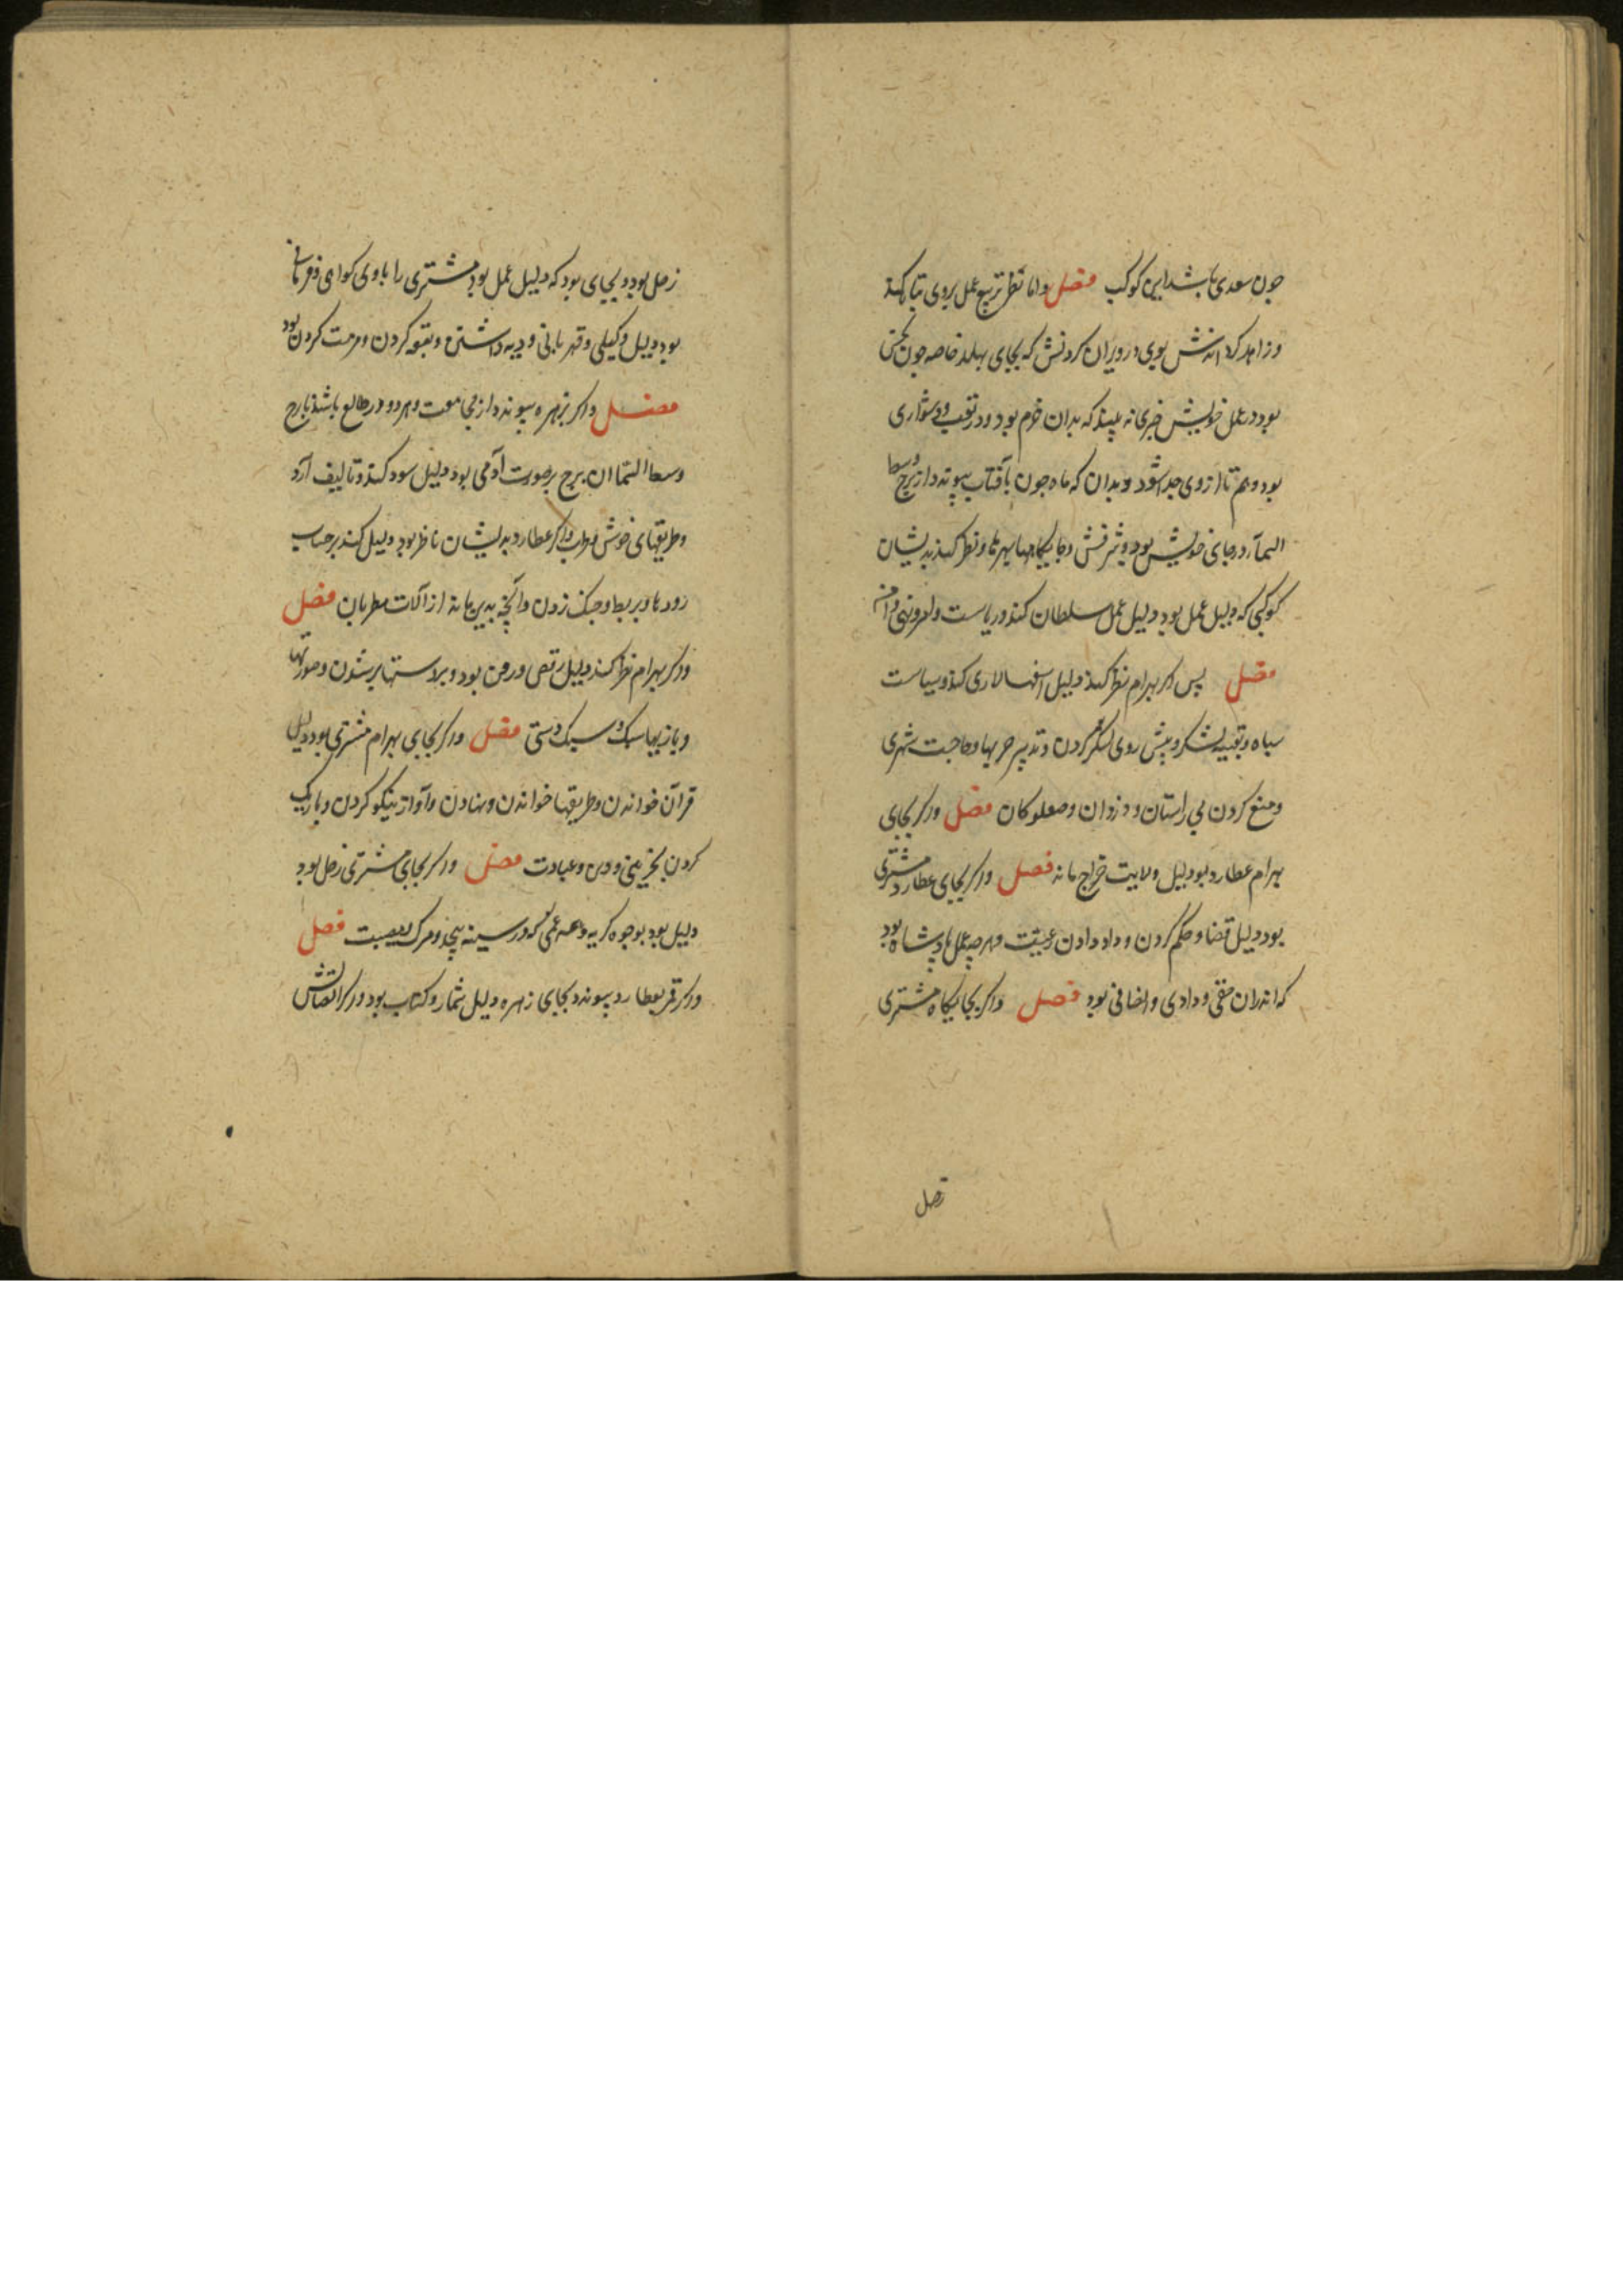 چون سعدی باشد این کوکب فصل و اما نظر تربیع عمل بر وی تباه کند
بوی در ویران کردنش که بجای بهلد خاصه چون نحس
بود در عمل خویش خبری نه بیند که بدان خرم بود و در تعب و دشواری
بود و هم تا از وی جدا شود و بدان که ماه چون بآفتاب پیوندد از برج وسط
السمآ و در جای خویش بود و شرفش و نظر کند بدیشان
کوکبی که دلیل عمل بود دلیل عمل سلطان کند و ریاست
فصل پس اکر بهرام نظر کند دلیل اسفهسالاری کند و سیاست
سپاه و تعبیه لشکر و پیش روی لشکر کردن و تدبیر حربها و حاجبت شهری
و منع کردن بی راستان و دزدان و صعلوکان فصل و اکر بجای
بهرام عطارد بود دلیل ولایت خراج ماند فصل و اکر بجای عطارد مشتری
بود دلیل قضا و حکم کردن و داد دادن رعیت و هر چه عمل پادشاه بود
که اندران حقی و دادی و انصافی بود فصل و اکر بجایکاه مشتری
زحل
زحل بود و بجای بود که دلیل عمل بود مشتری را با وی کواهی
بود دلیل وکیلی و قهرمانی و دیه داشتن و کردن و مرمت کردن بود
فصل و اکر بزهره پیوندد از مجامعت و هر دو در طالع باشند یا برج
وسط السما ان برج بر صورت آدمی بود دلیل سود کند و تالیف آرد
و طریقهای خوش و اکر عطارد بدیشان ناظر بود دلیل کند بر حساب
رودها و بربط و چنک زدن و آنچه بدین ماند از آلات مطربان فصل
و اکر بهرام نظر کند دلیل رقص بود و بر دستها بر شدن و صورتها
و بازیها سبک و سبک دستی فصل و اکر بجای بهرام مشتری بود دلیل
قرآن خواندن و طریقها خواندن و نهادن و آواز نیکو کردن و باریک
کردن و عبادت فصل و اکر بجای مشتری زحل بود
دلیل بود بوجوه کریه و همه غمی که در سینه پیچد و مرک و مصیبت فصل
و اکر قمر بعطارد پیوندد بجای زهره دلیل شمار و کتاب بود و اکر اتصالش